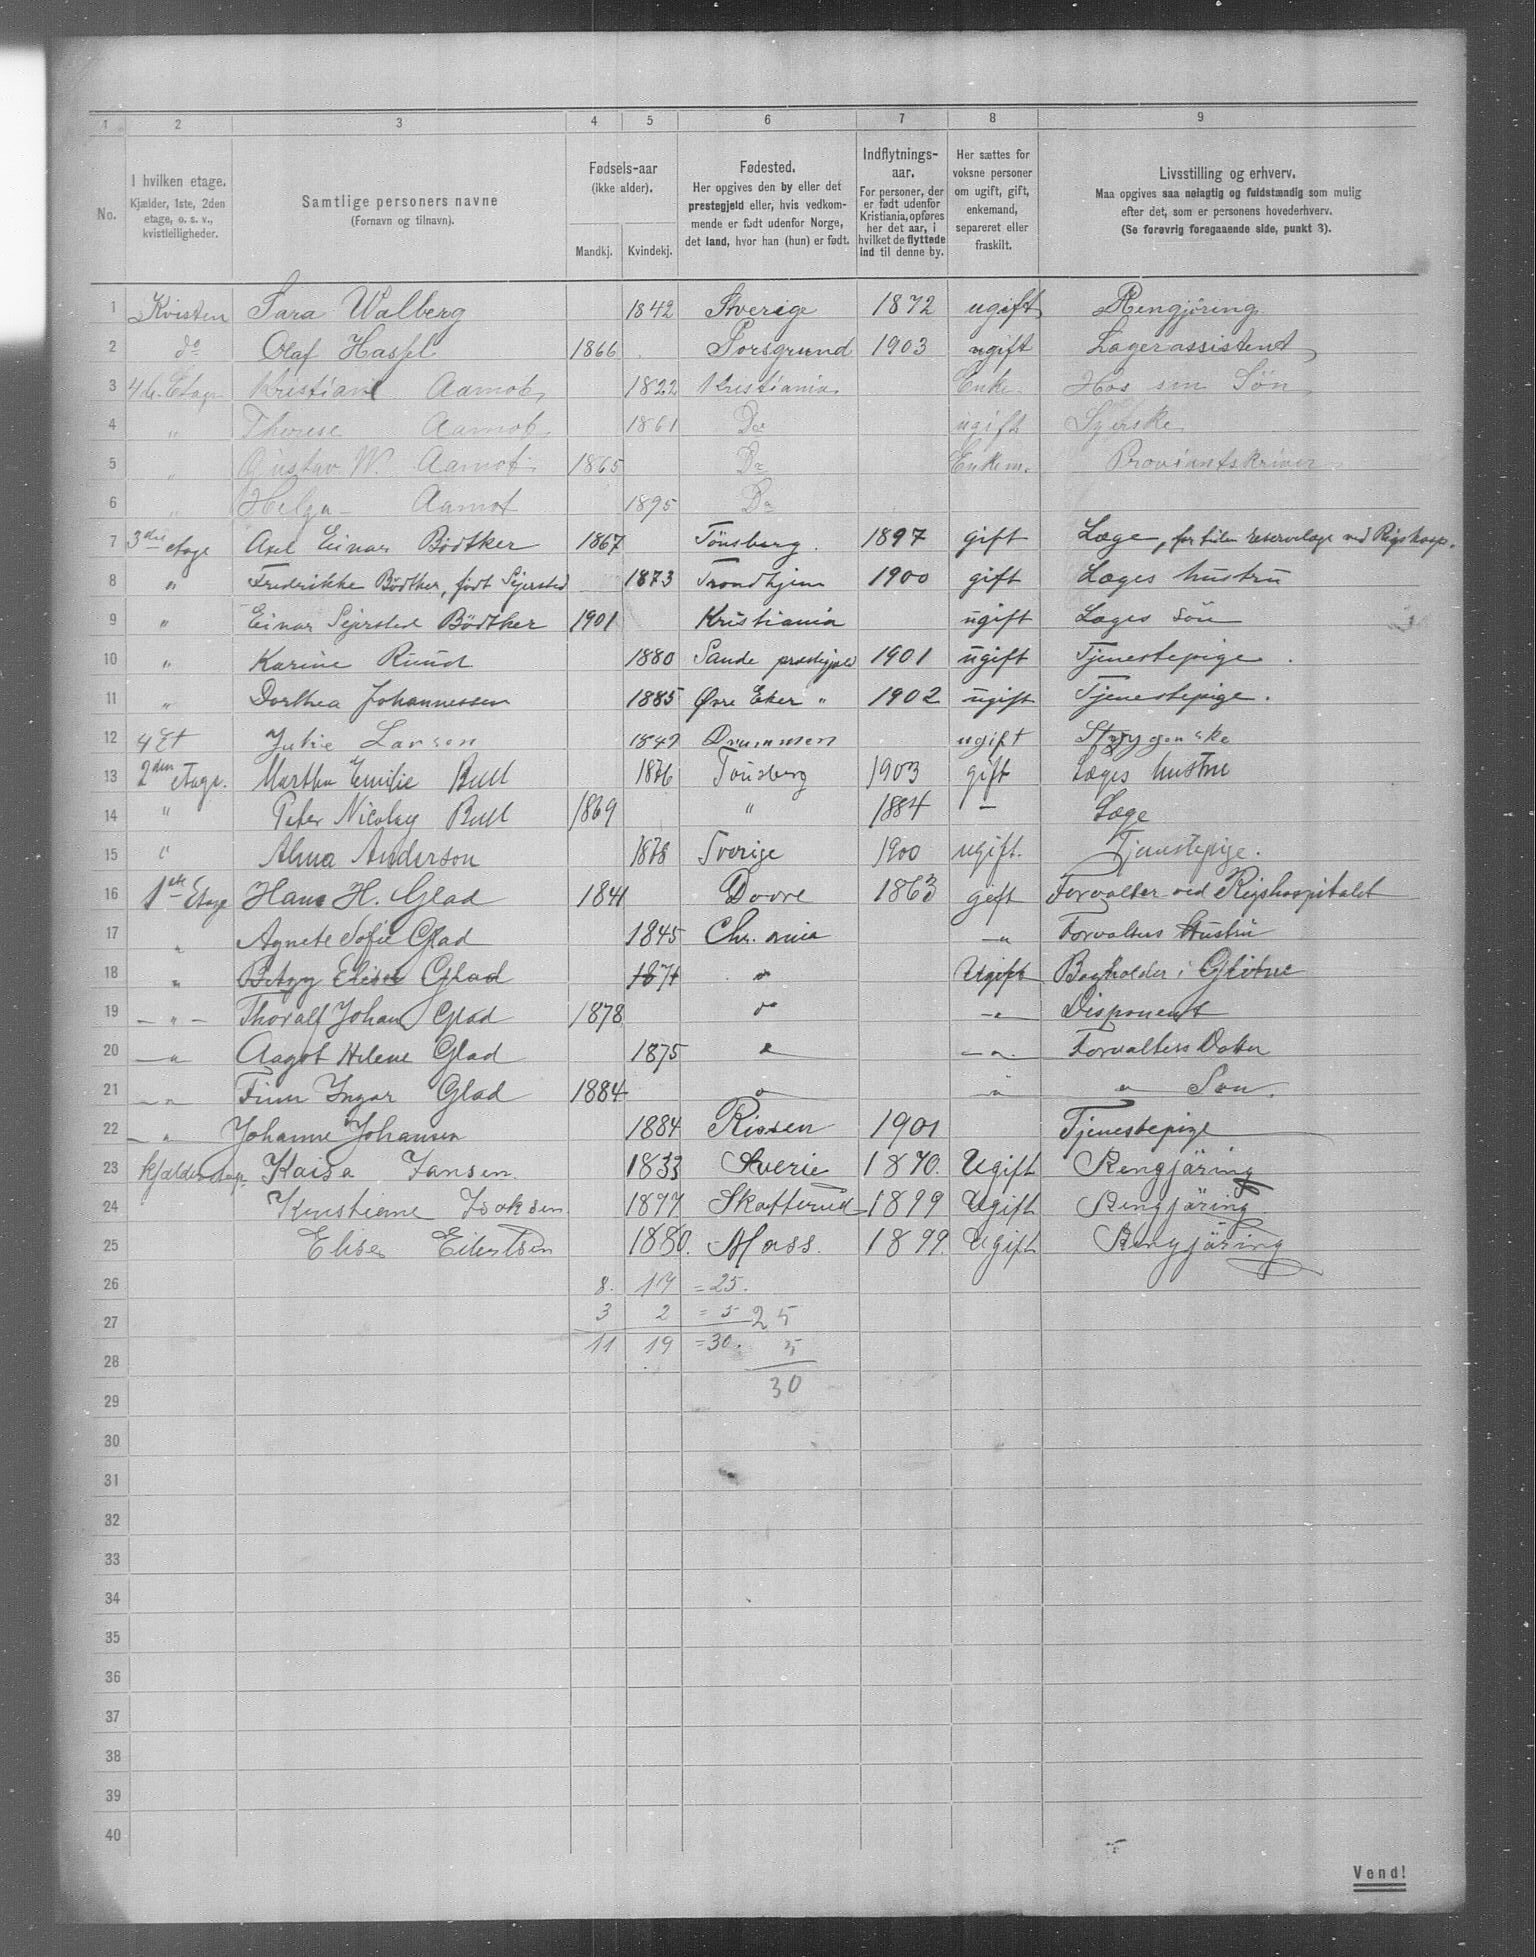 1 2 3 4 5 6 7 8 9
No. I hvilken etage. Kjælder, 1ste, 2den etage, o. s. v., kvistleiligheder. Samtlige personers navne (Fornavn og tilnavn). Fødsels-aar (ikke alder). Mandkj. Kvindekj. Fødested. Her opgives den by eller det prestegjeld eller, hvis vedkommende er født udenfor Norge, det land, hvor han (hun) er født. Indflytnings-aar. For personer, der er født udenfor Kristiania, opføres her det aar, i hvilket de flyttede ind til denne by. Her sættes for voksne personer om ugift, gift, enkemand, separeret eller fraskilt. Livsstilling og erhverv. Maa opgives saa nøiagtig og fuldstændig som mulig efter det, som er personens hovederhverv. (Se forøvrig foregaaende side, punkt 3).
1 Kvisten Sara Walberg 1842 Sverige 1872 ugift Rengjøring
2 do Olaf Hassel 1866 Porsgrund 1903 ugift Lagerassistent
3 4de Etage Kristiane Aamot 1822 Kristiania Enke. Hos sin Søn
4 " Therese Aamot 1861 Do ugift Syerske
5 " Gustav W. Aamot 1865 Do Enkem. Proviantskriver
6 " Helga Aamot 1895 Do
7 3die etage Axel Einar Bödtker 1867 Tönsberg. 1897 gift Læge, for tiden reservelæge ved Rigshosp.
8 " Fredrikke Bödtker, født Sejersted 1873 Trondhjem 1900 gift Læges hustru
9 " Einar Sejersted Bödtker 1901 Kristiania ugift Læges sön
10 " Karine Ruud 1880 Sande prestegjeld 1901 ugift Tjenestepige.
11 " Dorthea Johannessen 1885 Øvre Eker " 1902 ugift Tjenestepige.
12 4 Et Julie Larsen 1849 Drammen ugift Strygerske
13 2den etage. Martha Emilie Bull 1876 Tönsberg 1903 gift Læges hustru
14 " Peter Nicolay Bull 1869 " 1884 – Læge
15 " Alma Anderson 1878 Sverige 1900 ugift. Tjenestepige.
16 1ste Etage Hans H. Glad 1841 Dovre 1863 gift Forvalter ved Rigshospitalet
17 " Agnete Sofie Glad 1845 Chr.ania " Forvalters Hustru
18 " Betzy Elise Glad 1871 " Ugift Bogholder i Glitne
19 – " – Thoralf Johan Glad 1878 do " Disponent
20 – " Aagot Helene Glad 1875 " – " – Forvalters Datter
21 – " Finn Ingar Glad 1884 " " " Søn.
22 – " Johanne Johansen 1884 Rissen 1901 Tjenestepige
23 Kjælderetage Kaisa Jansen 1833 Sverie 1870. Ugift Rengjäring
24 Kristiane Isaksen 1877 Skatterud 1899 Ugift Rengjäring
25 Elise Eilertsen 1880. Moss. 1899. Ugift Rengjäring
26 8. 17 = 25.
27 3 2 = 5 25
28 11 19 = 30. 5
29 30
30
31
32
33
34
35
36
37
38
39
40
Vend!